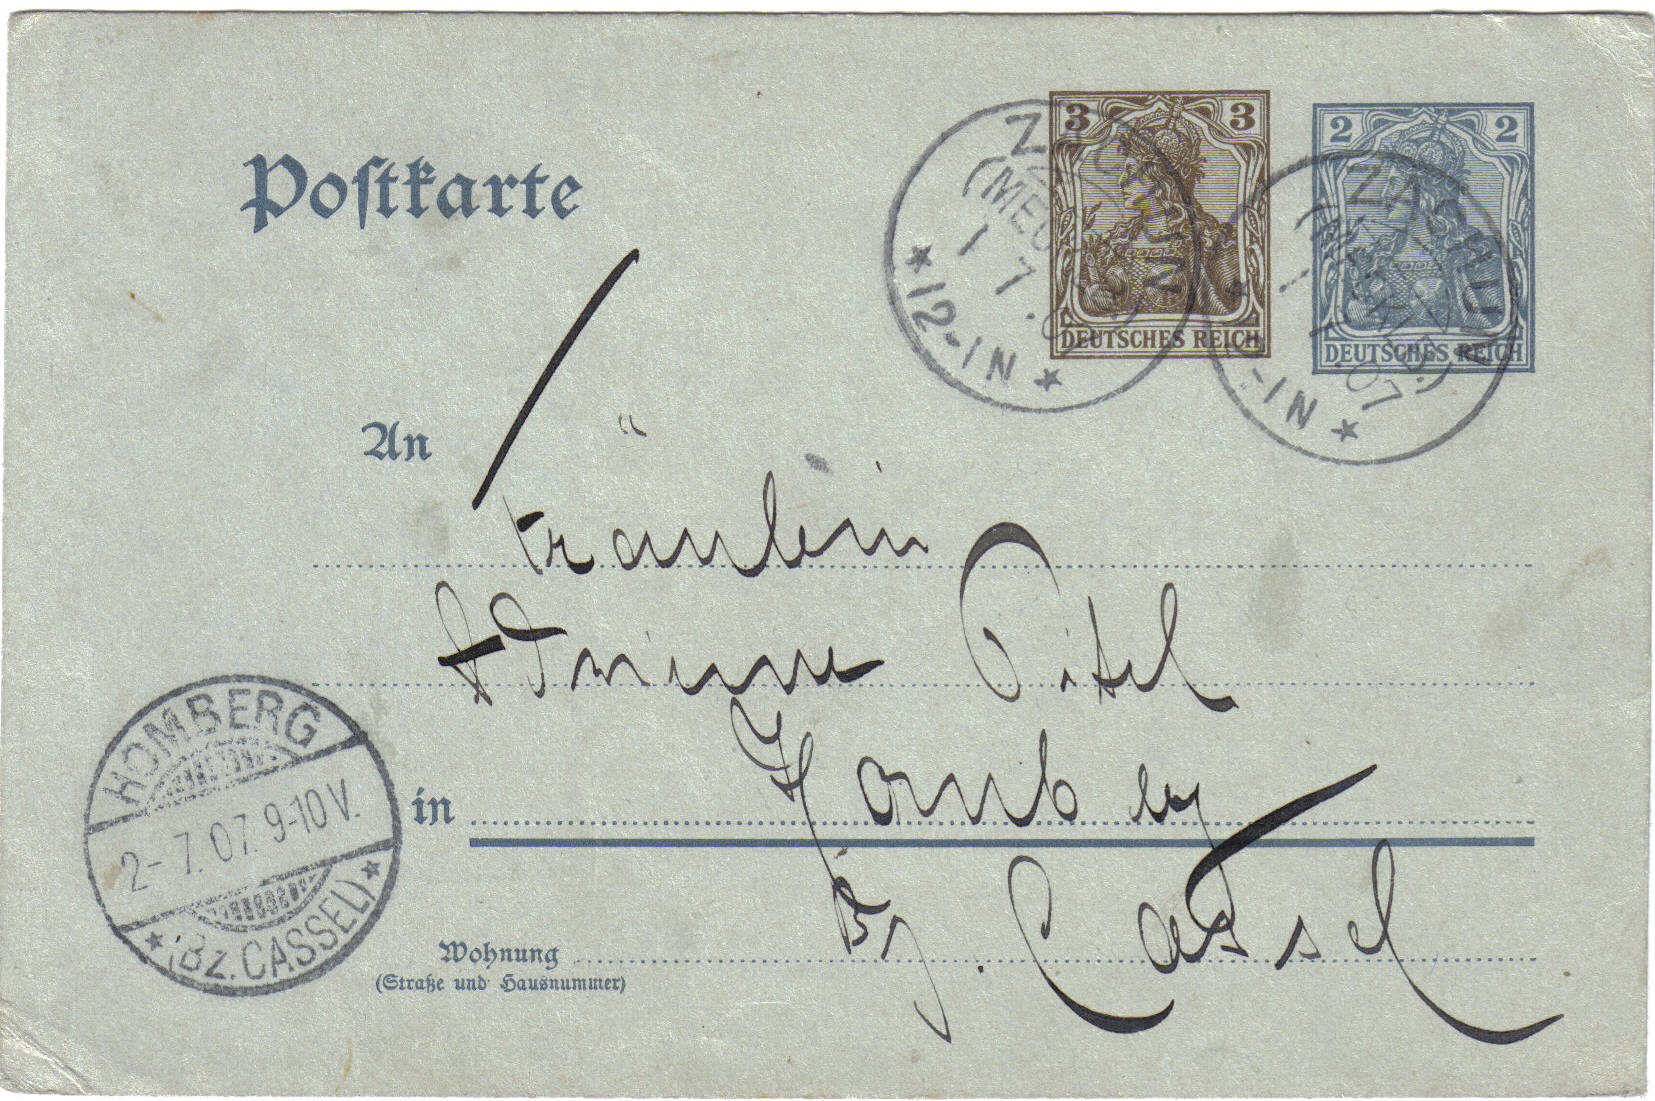 Postkarte
3 3
DEUTSCHES REICH
2 2
DEUTSCHES REICH
ZACHUN
(MECKLB.)
1 7 .07
*12-1N*
ZACHUN
(MECKLB.)
1 7.07
-1N *
An
Fräulein
Pitel
in Homberg
Bz. Cassel
Wohnung
(Straße und Hausnummer)
HOMBERG
2-7.07.9-10V.
* (Bz. CASSEL) *